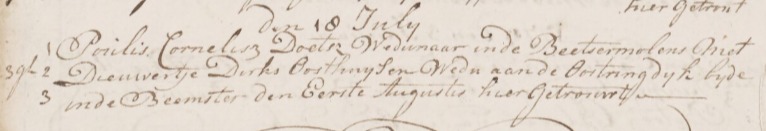 hier Getrout
den 18 July
1 Poulis Cornelisz Doets Wedunaar inde Beetsermolens Met
3 gl 2 Dieuwertje Dirks Oosthuysen Wedu aande Oostringdyk byde
3 inde Beemster den Eerste Augustus hier Getrouwt